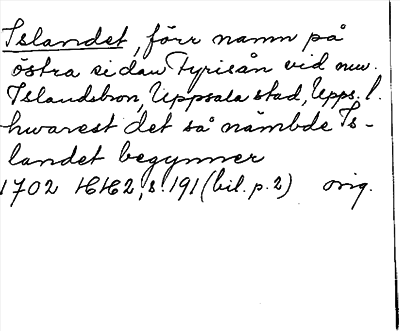 Islandet, förr namn på
östra sidan Fyrisån vid nuv.
Islandsbron, Uppsala stad, Upps. l.
hwarest det så nämbde Is-
landet begynner
1702 HH2, s. 191 (bil. p. 2) orig.